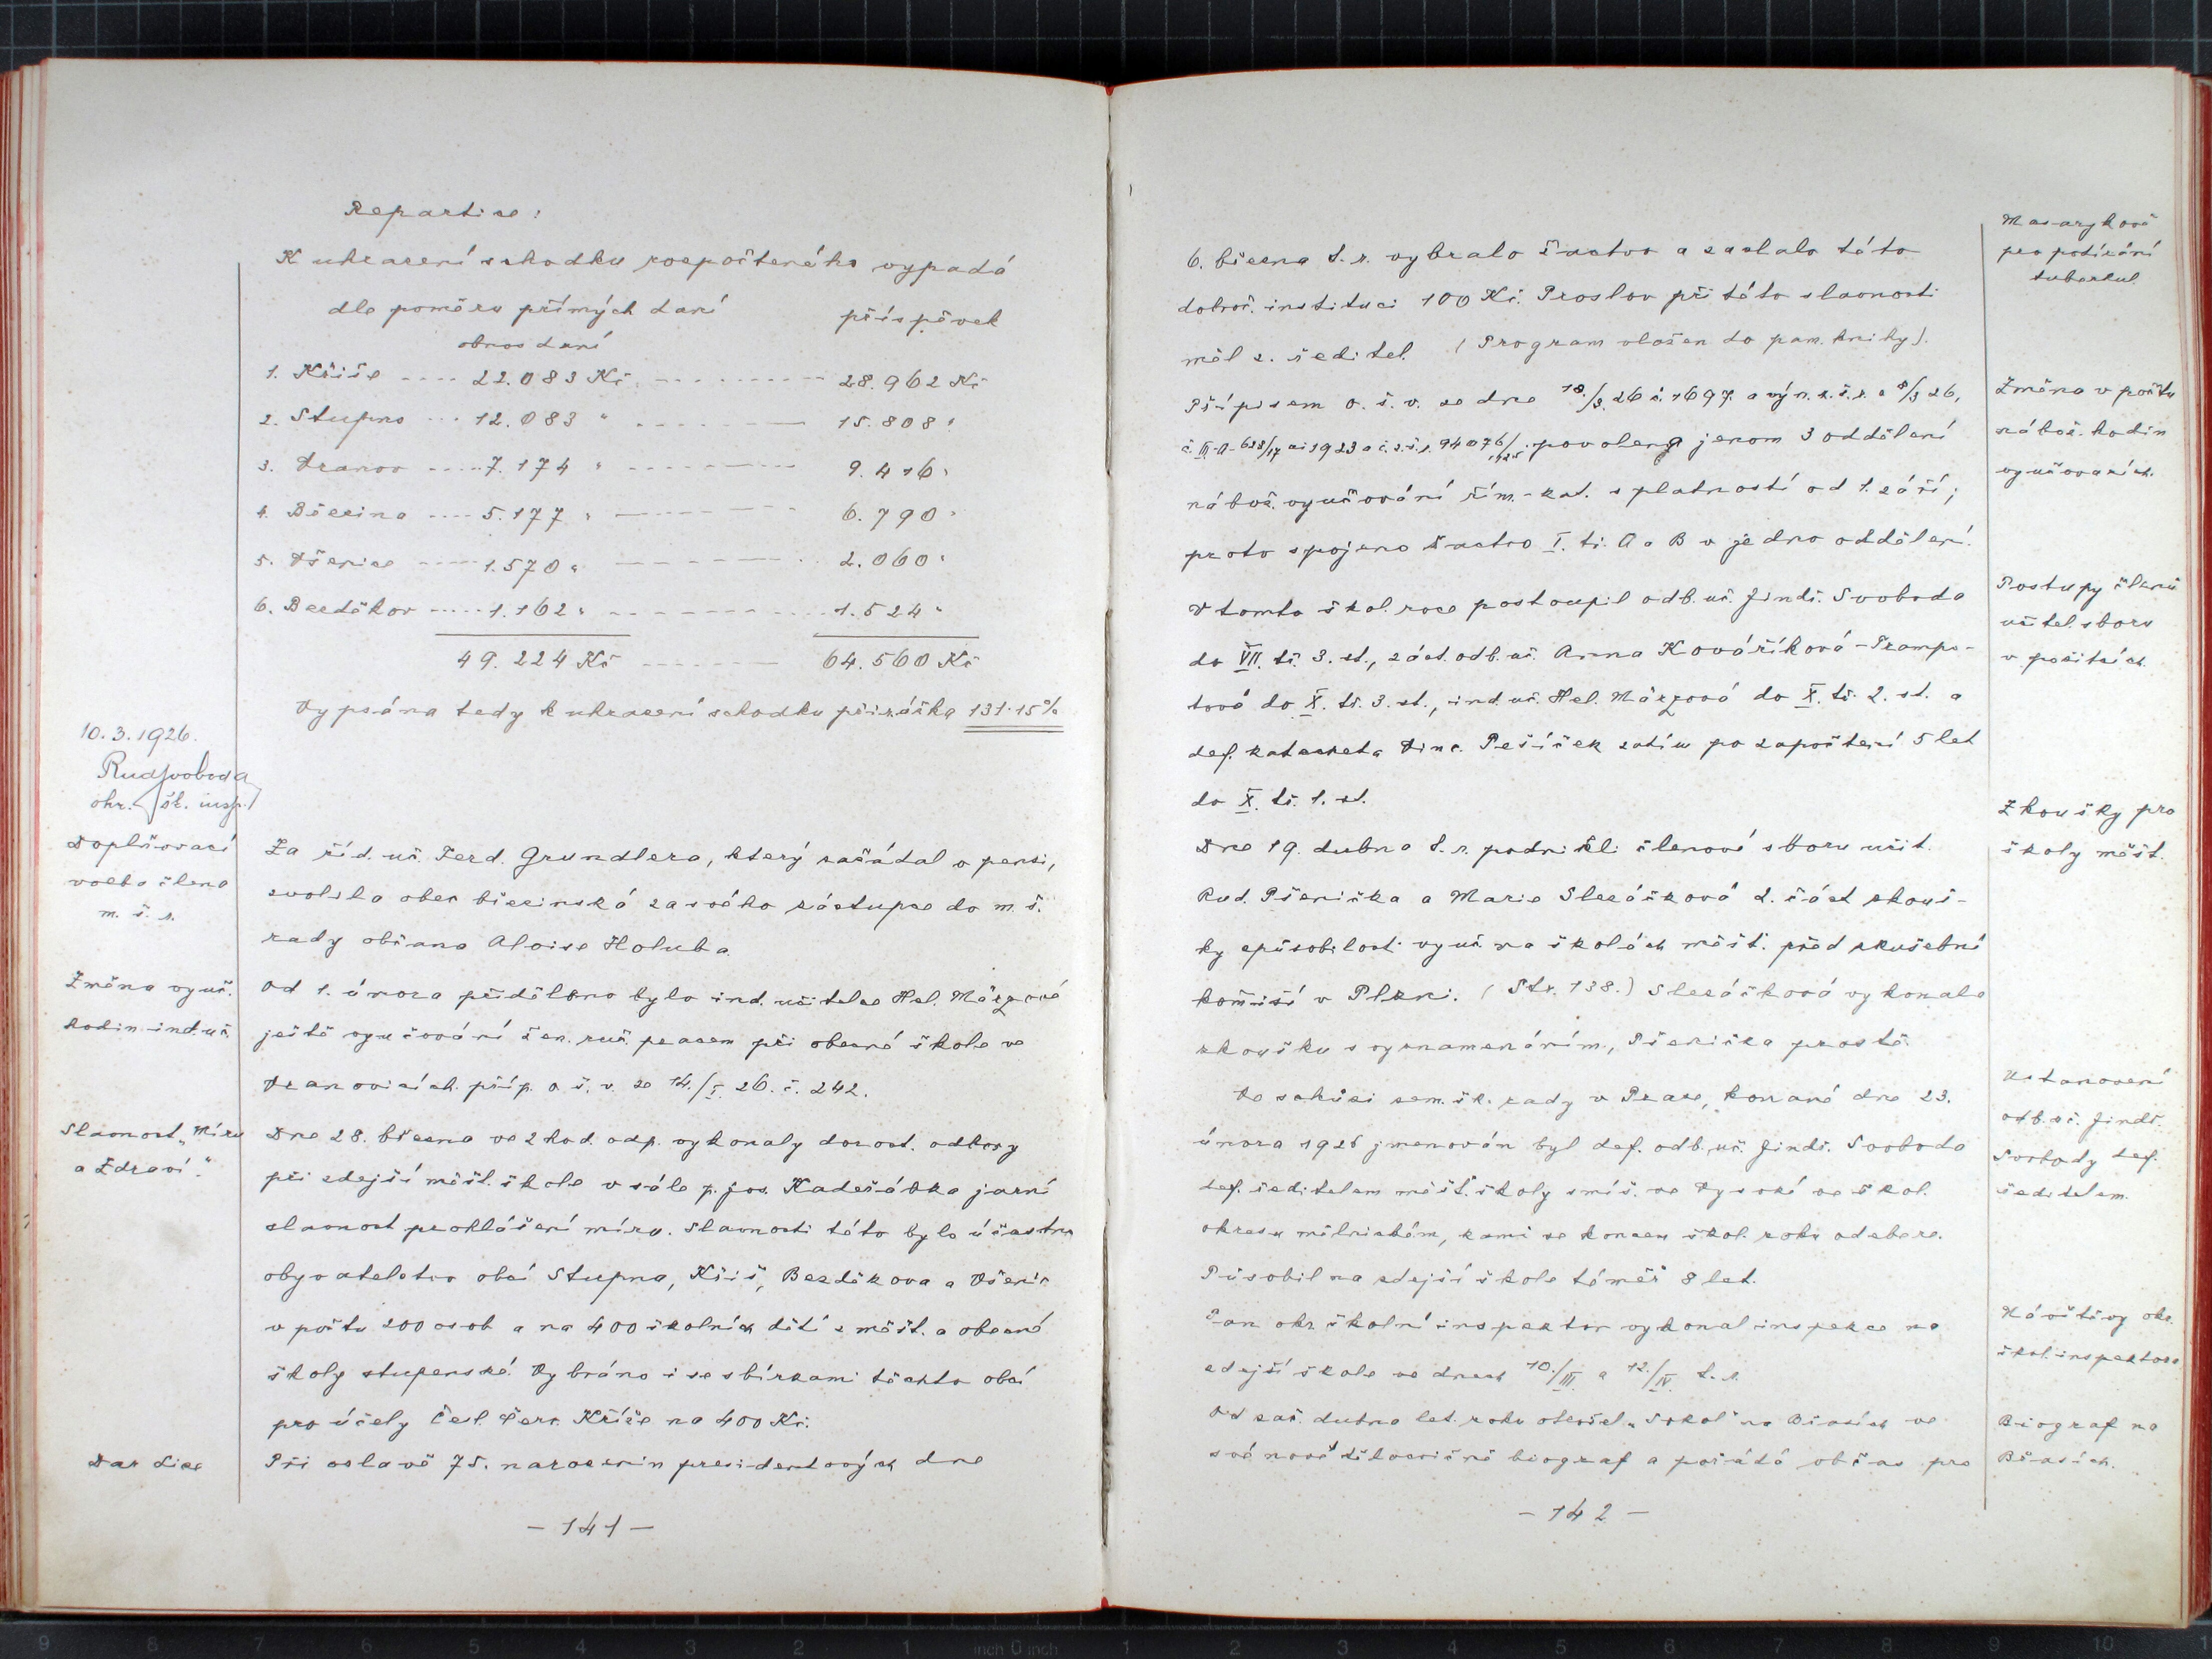 Repartice:
K uhrazení schodku rozpočteného vypadá
dle poměru přímých daní příspěvek
obnos daní
1. Kříše ---- 22.083 Kč ---- 28.962 Kč
2. Stupno --- 12.083 " ---- 15.808 "
3. Vranov ---- 7.174 " ---- 9.416 "
4. Břesina ---- 5.177 " ---- 6.790 "
5. Všenice ---- 1.570 " ---- 2.060 "
6. Bezděkov ---- 1.162 " ---- 1.524 "
49.224 Kč ---- 64.560 Kč
Vypsána tedy k uhrazení schodku přirážka 131.15%
10.3.1926.
Rud Svoboda
okr. šk. insp.
Doplňovací
volba člena
m. š. r.
Za říd. uč. Ferd. Grundlera, který zažádal o pensi,
zvolila obec březinská za svého zástupce do m. š.
rady občana Aloise Holuba.
Změna vyuč.
hodin ind. uč.
Od 1. února přiděleno bylo ind. učitelce Hel. Märzové
ještě vyučování žen. ruč. pracem při obecné škole ve
Vranovicích příp. o. š. v. ze 14./I. 26. č. 242.
Slavnost „Míru
a Zdraví".
Dne 28. března ve 2 hod. odp. vykonaly dorost. odbory
při zdejší měšt. škole v sále p. Jos. Kadeřábka jarní
slavnost prohlášení míru. Slavnosti této bylo účastno
obyvatelstvo obcí Stupna, Kříš, Bezděkova a Všenic
v počtu 200 osob a na 400 školních dětí z měšt. a obecné
školy stupenské. Vybráno i se sbírkami těchto obcí
pro účely Česl. Červ. Kříže na 400 Kč.
Dar Lize
Při oslavě 75. narozenin presidentových dne
– 141 –
Masarykově
pro potírání
tuberkul.
6. března t. r. vybralo žactvo a zaslalo této
dobroč. instituci 100 Kč. Proslov při této slavnosti
měl z. ředitel. (Program vložen do pam. knihy).
Změna v počtu
nábož. hodin
vyučovacích.
Přípisem o. š. v. ze dne 18./3. 26 č. 1697 a výn. z. š. r. z 8/3 26,
č. III-A-623/17 ai 1923 a č. z. š. r. 94076/1925 povolena jenom 3 oddělení
nábož. vyučování řím.-kat. s platností od 1. září;
proto spojeno žactvo I. tř. A a B v jedno oddělení.
Postupy členů
učitel. sboru
v požitcích.
V tomto škol. roce postoupil odb. uč. Jindř. Svoboda
do VII. tř. 3. st., zást. odb. uč. Anna Kováříková-Trampo-
tová do X. tř. 3. st., ind. uč. Hel. Märzová do X. tř. 2. st. a
def. katecheta Vinc. Pešíček zatím po započtení 5 let
do X. tř. 1. st.
Zkoušky pro
školy měšt.
Dne 19. dubna t. r. podnikli členové sboru učit.
Rud. Pšenička a Marie Slezáčková 2. část zkouš-
ky způsobilosti vyuč. na školách měšt. před zkušební
komisí v Plzni. (Str. 138.) Slezáčková vykonala
zkoušku s vyznamenáním, Pšenička prostě.
Ustanovení
odb. uč. Jindř.
Svobody def.
ředitelem.
Ve schůzi zem. šk. rady v Praze, konané dne 23.
února 1926 jmenován byl def. odb. uč. Jindř. Svoboda
def. ředitelem měšt. školy smíš. ve Vysoké ve škol.
okresu mělnickém, kamž se koncem škol. roku odebere.
Působil na zdejší škole téměř 8 let.
Návštěvy okr.
škol. inspektora
Pan okr. školní inspektor vykonal inspekce na
zdejší škole ve dnech 10./III. a 12./IV. t. r.
Biograf na
Břasích.
Od zač. dubna let. roku otevřel „Sokol" na Břasích ve
své nové tělocvičně biograf a pořádá občas pro
– 142 –